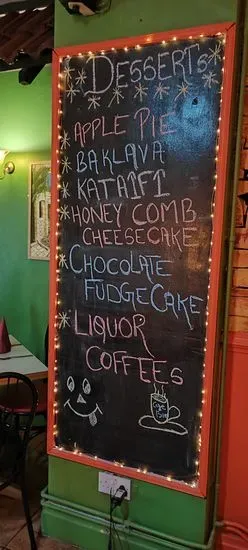 DESSERTS
APPLE PIE
BAKLAVA
KATAIFI
HONEY COMB
CHEESECAKE
CHOCOLATE
FUDGECAKE
LIQUOR
COFFEES